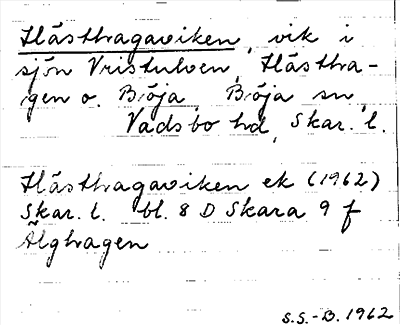 Hästhagaviken, vik i
sjön Vristulven, Hästha-
gen o. Böja, Böja sn,
Vadsbo hd, Skar. l.
Hästhagaviken ek (1962)
Skar. l. bl. 8 D Skara 9 f
Älghagen
S.S.-B. 1962